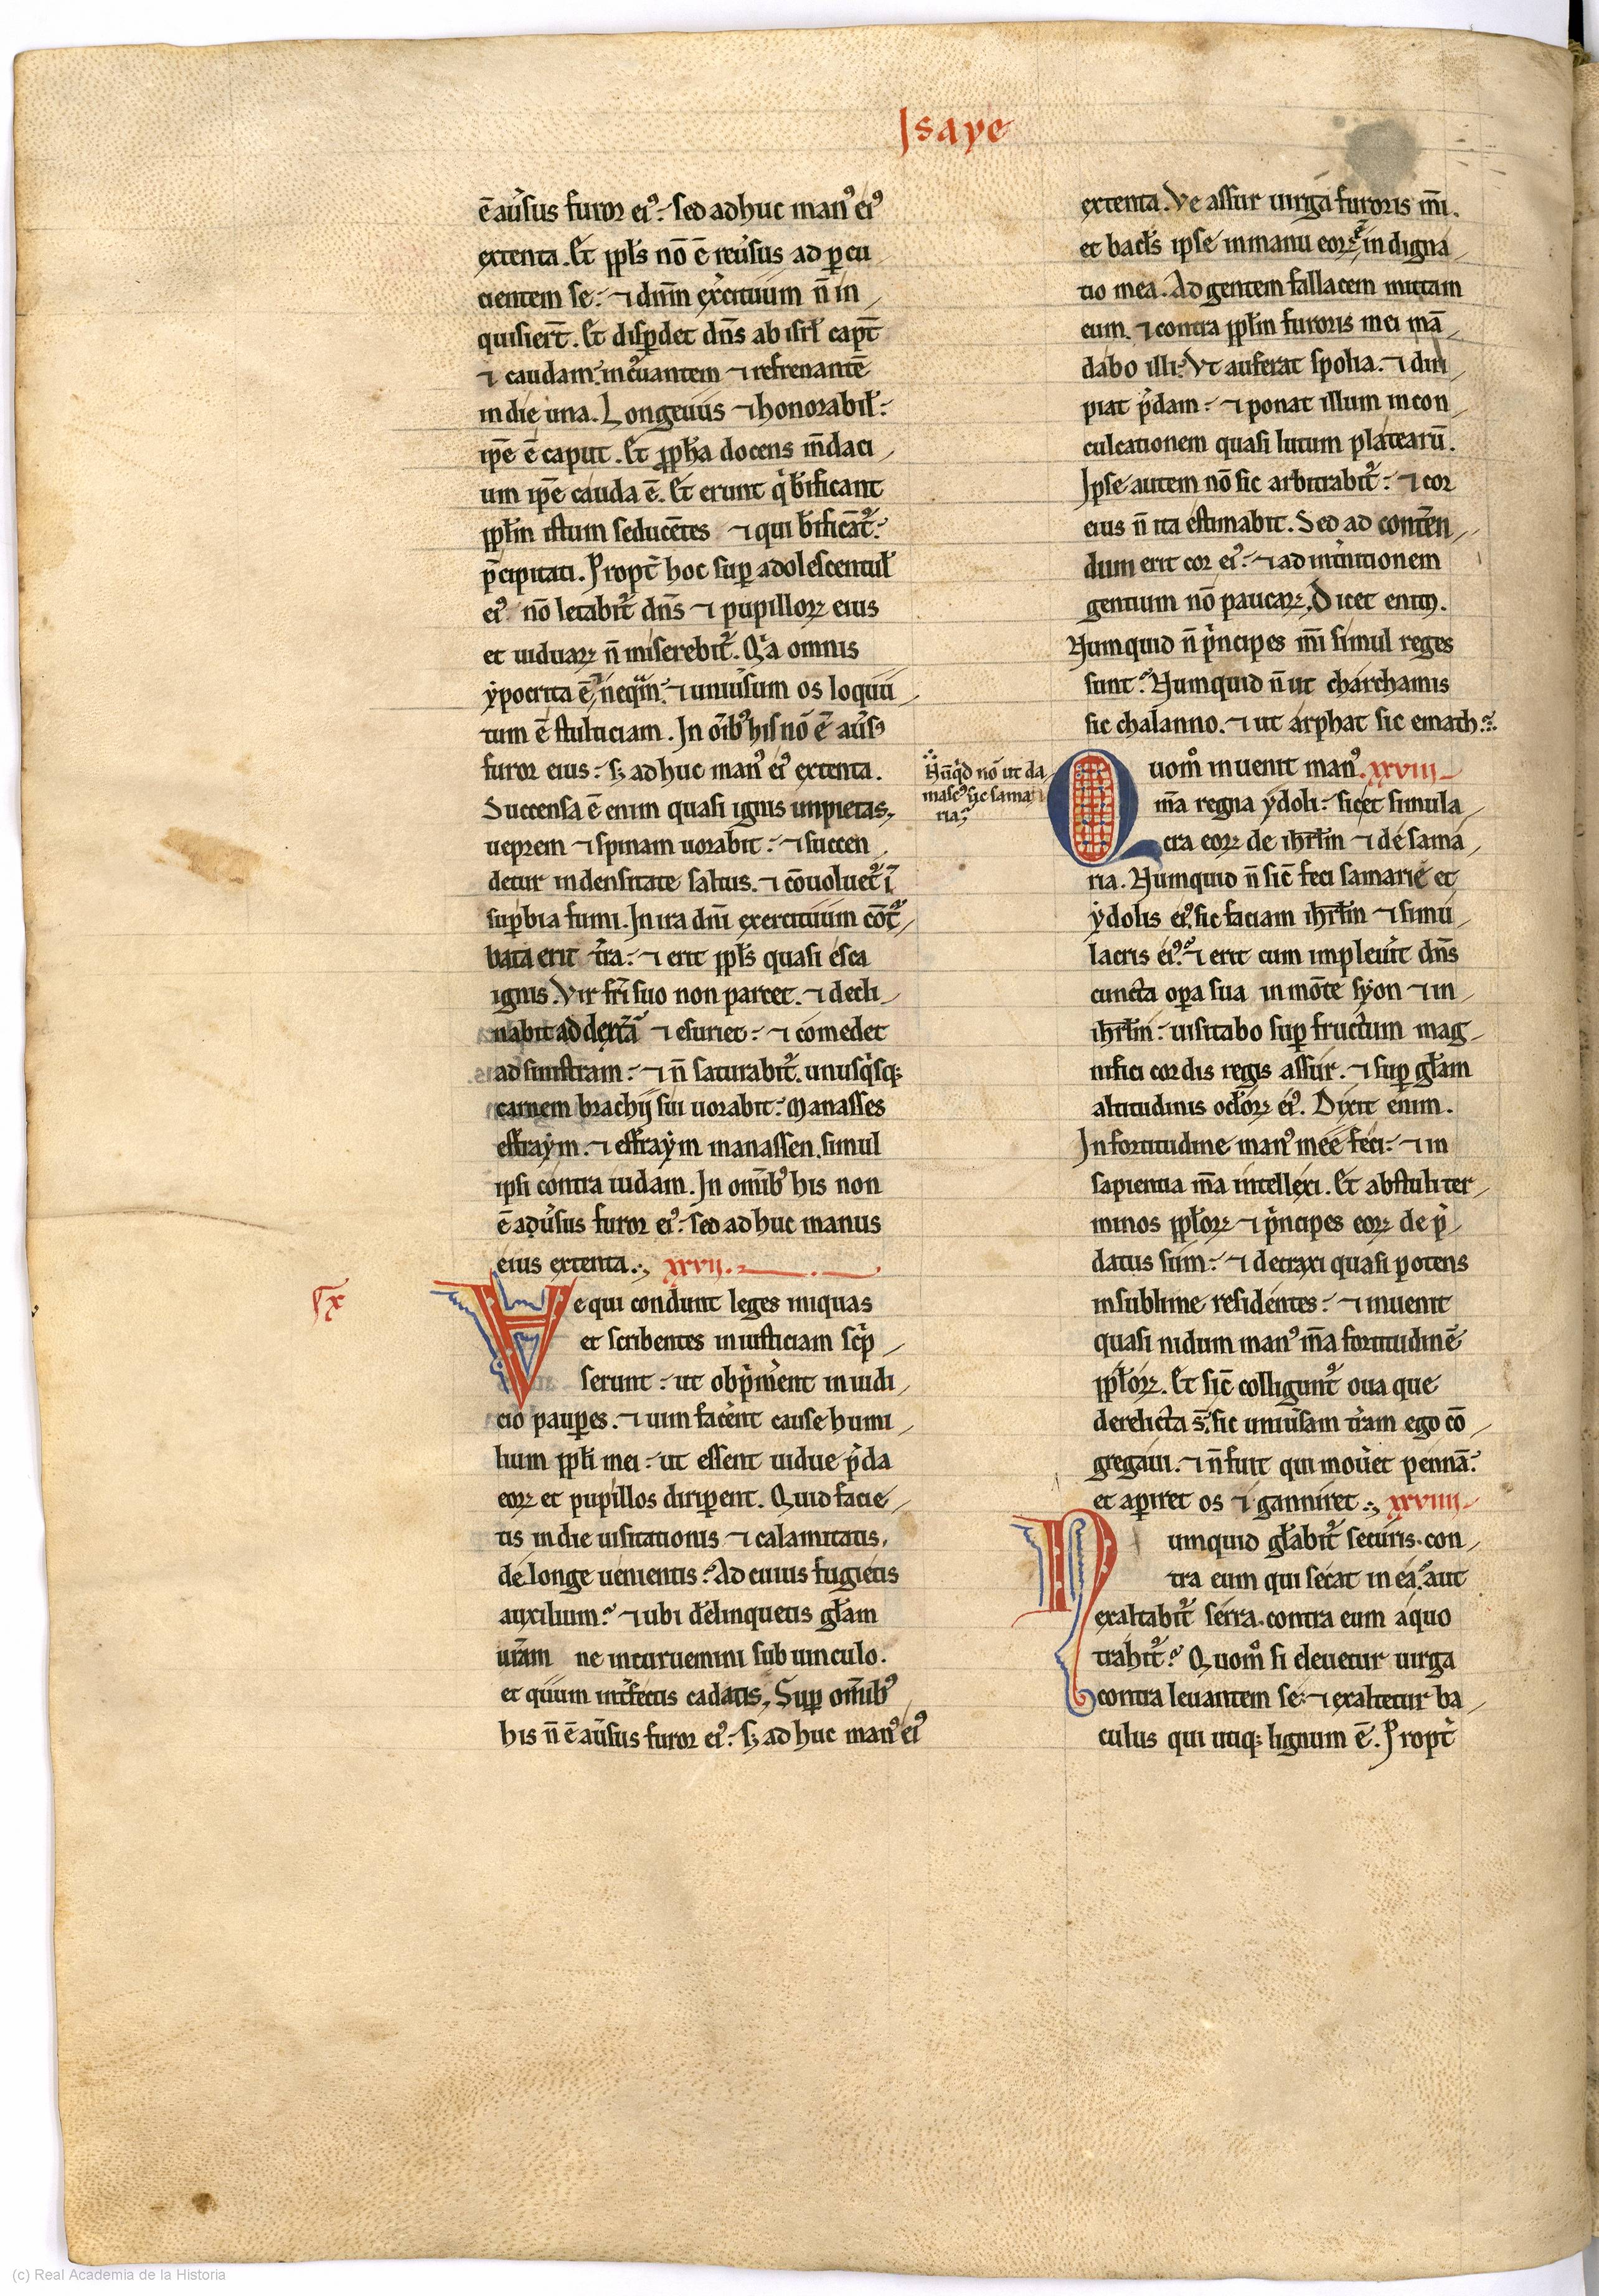 Isaye
ē au̓sus furor ei⁹ : sed adhuc man⁹ ei⁹
extenta . Et ppl̄s nō ē reu̓sus ad ꝑcu
cientem se : ⁊ dnm̄ ex̓cituum n̄ in
quisier̄t . Et disꝑdet dn̄s ab isrl̄ capt̄
⁊ caudam : incu̓uantem ⁊ refrenantē
in die una . Longeuus ⁊ honorabil̄ :
ip̄e ē caput . Et ꝓph̄a docens m̄daci
um ip̄e cauda ē . Et erunt q̇ b̄ificant
ppl̄m istum seducētes ⁊ qui b̄ificāt᷑ :
p̄cipitati . Propt̄ hoc suꝑ adolescentul̄
ei⁹ nō letabit᷑ dn̄s ⁊ pupilloꝝ eius
et uiduaꝝ n̄ miserebit᷑ . Q̇a omnis
ẏpocrita ē ⁊ neq̄m : ⁊ uniu̓sum os loquu
tum ē stulticiam . In oīb⁹ his nō ē au̓s⁹
furor eius : sꝫ adhuc man⁹ ei⁹ extenta .
Succensa ē enim quasi ignis impietas ,
ueprem ⁊ spinam uorabit : ⁊ succen
detur in densitate saltus . ⁊ cōuoluet᷑ ī
suꝑbia fumi . In ira dn̄i exercituum cōt᷑
bata erit t̓ra : ⁊ erit ppl̄s quasi esca
ignis . Vir frī suo non parcet . ⁊ decli
nabit ad dext̄ā ⁊ esuriet : ⁊ comedet
ad sinistram : ⁊ n̄ saturabit᷑ . unusq̇sqꝫ
carnem brachij sui uorabit : Manasses
effraẏm . ⁊ effraẏm manassen . simul
ipsi contra iudam . In om̄ib⁹ his non
ē adu̓sus furor ei⁹ : sed adhuc manus
eius extenta . , xxvij .
X
Ve qui condunt leges iniquas
et scribentes iniusticiam sc̓p
serunt : ut obp̓m̓ent in iudi
cio pauꝑes . ⁊ uim fac̓ent cause humi
lium ppl̄i mei : ut essent uidue p̓da
eoꝝ et pupillos diriꝑent . Quid facie
tis in die uisitationis ⁊ calamitatis ,
de longe uenientis : Ad cuius fugietis
auxilium : ⁊ ubi d̓elinquetis gl̄am
ur̄am ne incuruemini sub uinculo .
et quum int̓fectis cadatis , Suꝑ om̄ib⁹
his n̄ ē au̓sus furor ei⁹ : sꝫ adhuc man⁹ ei⁹
extenta . Ve assur uirga furoris m̄i .
et bacl̄s ipse in manu eoꝝ ē indigna
tio mea . Ad gentem fallacem mittam
eum . ⁊ contra ppl̄m furoris mei mā
dabo illi : Vt auferat spolia . ⁊ diri
piat p̓dam : ⁊ ponat illum in con
culcationem quasi lutum platearū .
Ipse autem nō sic arbitrabit᷑ : ⁊ cor
eius n̄ ita estimabit . Sed ad cont̄en
dum erit cor ei⁹ : ⁊ ad int̓nitionem
gentium nō paucaꝝ . Dicet enim .
Numquid n̄ p̓ncipes m̄i simul reges
sunt : Numquid n̄ ut charchamis
sic chalanno . ⁊ ut arphat sic emath :
Nūq̇d nō ut da
masc⁹ sic sama
ria :
Quom̊ inuenit man⁹ . xxviii
m̄a regna ẏdoli : sicet simula
cra eoꝝ de ihrl̄m ⁊ de sama
ria . Numquid n̄ sic̄ feci samarie et
ẏdolis ei⁹ , sic faciam ihrl̄m ⁊ simu
lacris ei⁹ : ⁊ erit cum impleu̓it dn̄s
cuncta oꝑa sua in mōte sẏon ⁊ in
ihrl̄m : uisitabo suꝑ fructum mag
nifici cordis regis assur . ⁊ suꝑ gl̄am
altitudinis ocl̄oꝝ ei⁹ . Dixit enim .
In fortitudine man⁹ mee feci : ⁊ in
sapientia m̄a intellexi . Et abstuli ter
minos ppl̄oꝝ ⁊ p̓ncipes eoꝝ de p̓
datus sum : ⁊ detraxi quasi potens
in sublime residentes : ⁊ inuenit
quasi nidum man⁹ m̄a fortitudinē
ppl̄oꝝ . Et sic̄ colligunt᷑ oua que
derelicta s̄ : sic uniu̓sam t̓ram ego cō
gregaui . ⁊ n̄ fuit qui mou̓et pennā :
et apiret os ⁊ ganniret . , xxviiii
Numquid gl̄abit᷑ securis . con
tra eum qui secat in ea : aut
exaltabit᷑ serra . contra eum a quo
trahit᷑ : Quom̊ si eleuetur uirga
contra leuantem se : ⁊ exaltetur ba
culus qui utiqꝫ lignum ē . Propt̓
(c) Real Academia de la Historia